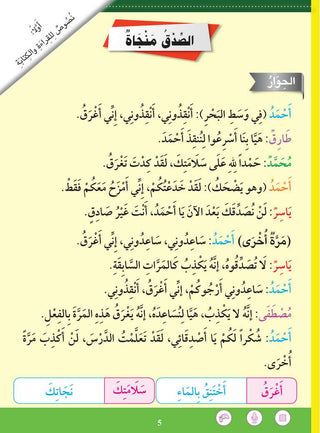 أَوَّلًا:
نُصُوصٌ لِلقِرَاءَةِ وَالكِتَابَةِ
الصِّدْقُ مَنْجَاةٌ
الحِوَارُ
أَحْمَدُ (فِي وَسَطِ البَحْرِ): أَنْقِذُونِي، أَنْقِذُونِي، إِنِّي أَغْرَقُ.
طَارِقٌ: هَيَّا بِنَا أَسْرِعُوا لِنُنْقِذَ أَحْمَدَ.
مُحَمَّدٌ: حَمْداً لِلهِ عَلَى سَلَامَتِكَ، لَقَدْ كِدْتَ تَغْرَقُ.
أَحْمَدُ (وهو يَضْحَكُ): لَقَدْ خَدَعْتُكُمْ، إِنِّي أَمْزَحُ مَعَكُمْ فَقَطْ.
يَاسِرٌ: لَنْ نُصَدِّقَكَ بَعْدَ الآنَ يَا أَحْمَدُ، أَنْتَ غَيْرُ صَادِقٍ.
(مَرَّةً أُخْرَى) أَحْمَدُ: سَاعِدُونِي، سَاعِدُونِي، إِنِّي أَغْرَقُ.
يَاسِرٌ: لَا تُصَدِّقُوهُ، إِنَّهُ يَكْذِبُ كالمَرَّاتِ السَّابِقَةِ.
أَحْمَدُ: سَاعِدُونِي أَرْجُوكُمْ، إِنِّي أَغْرَقُ، أَنْقِذُونِي.
مُصْطَفَى: إِنَّهُ لا يَكْذِبُ، هَيَّا لِنُسَاعِدَهُ، إِنَّهُ يَغْرَقُ هَذِهِ المَرَّةَ بِالفِعْلِ.
أَحْمَدُ: شُكْراً لَكُمْ يَا أَصْدِقَائِي، لَقَدْ تَعَلَّمْتُ الدَّرْسَ، لَنْ أَكْذِبَ مَرَّةً
أُخْرَى.
أَغْرَقُ أَخْتَنِقُ بِالمَاءِ سَلَامَتِكَ نَجَاتِكَ
5